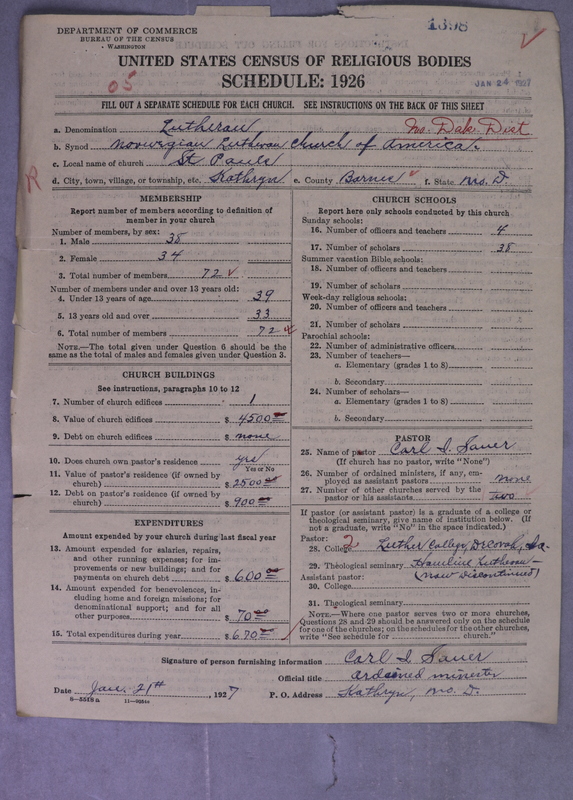 DEPARTMENT OF COMMERCE
BUREAU OF THE CENSUS
WASHINGTON
1398
UNITED STATES CENSUS OF RELIGIOUS BODIES
SCHEDULE: 1926
05
JAN 24 1927
FILL OUT A SEPARATE SCHEDULE FOR EACH CHURCH. SEE INSTRUCTIONS ON THE BACK OF THIS SHEET
a. Denomination Lutheran No. Dak. Dist
b. Synod Norwegian Lutheran Church of America.
c. Local name of church St Pauls
d. City, town, village, or township, etc. Kathryn e. County Barnes f. State No. D.
R
MEMBERSHIP
Report number of members according to definition of member in your church
Number of members, by sex:
1. Male 38
2. Female 34
3. Total number of members 72
Number of members under and over 13 years old:
4. Under 13 years of age 39
5. 13 years old and over 33
6. Total number of members 72
NOTE.—The total given under Question 6 should be the same as the total of males and females given under Question 3.
CHURCH BUILDINGS
See instructions, paragraphs 10 to 12
7. Number of church edifices 1
8. Value of church edifices $ 4500 00
9. Debt on church edifices $ none
10. Does church own pastor's residence yes
Yes or No
11. Value of pastor's residence (if owned by church) $ 2500 00
12. Debt on pastor's residence (if owned by church) $ 900 00
EXPENDITURES
Amount expended by your church during last fiscal year
13. Amount expended for salaries, repairs, and other running expenses; for improvements or new buildings; and for payments on church debt $ 600 00
14. Amount expended for benevolences, including home and foreign missions; for denominational support; and for all other purposes $ 70 00
15. Total expenditures during year $ 670 00
CHURCH SCHOOLS
Report here only schools conducted by this church
Sunday schools:
16. Number of officers and teachers 4
17. Number of scholars 38
Summer vacation Bible schools:
18. Number of officers and teachers
19. Number of scholars
Week-day religious schools:
20. Number of officers and teachers
21. Number of scholars
Parochial schools:
22. Number of administrative officers
23. Number of teachers—
a. Elementary (grades 1 to 8)
b. Secondary
24. Number of scholars—
a. Elementary (grades 1 to 8)
b. Secondary
PASTOR
25. Name of pastor Carl I. Sauer
(If church has no pastor, write "None")
26. Number of ordained ministers, if any, employed as assistant pastors none
27. Number of other churches served by the pastor or his assistants two
If pastor (or assistant pastor) is a graduate of a college or theological seminary, give name of institution below. (If not a graduate, write "No" in the space indicated.)
Pastor: 2
28. College Luther College, Decorah, Ia.
29. Theological seminary Hauline Lutheran
Assistant pastor: (now discontinued)
30. College
31. Theological seminary
NOTE.—Where one pastor serves two or more churches, Questions 28 and 29 should be answered only on the schedule for one of the churches; on the schedules for the other churches, write "See schedule for church."
Signature of person furnishing information Carl I. Sauer
Official title ordained minister
Date Jan. 21th, 1927 P. O. Address Kathryn, No. D.
8—5518 a